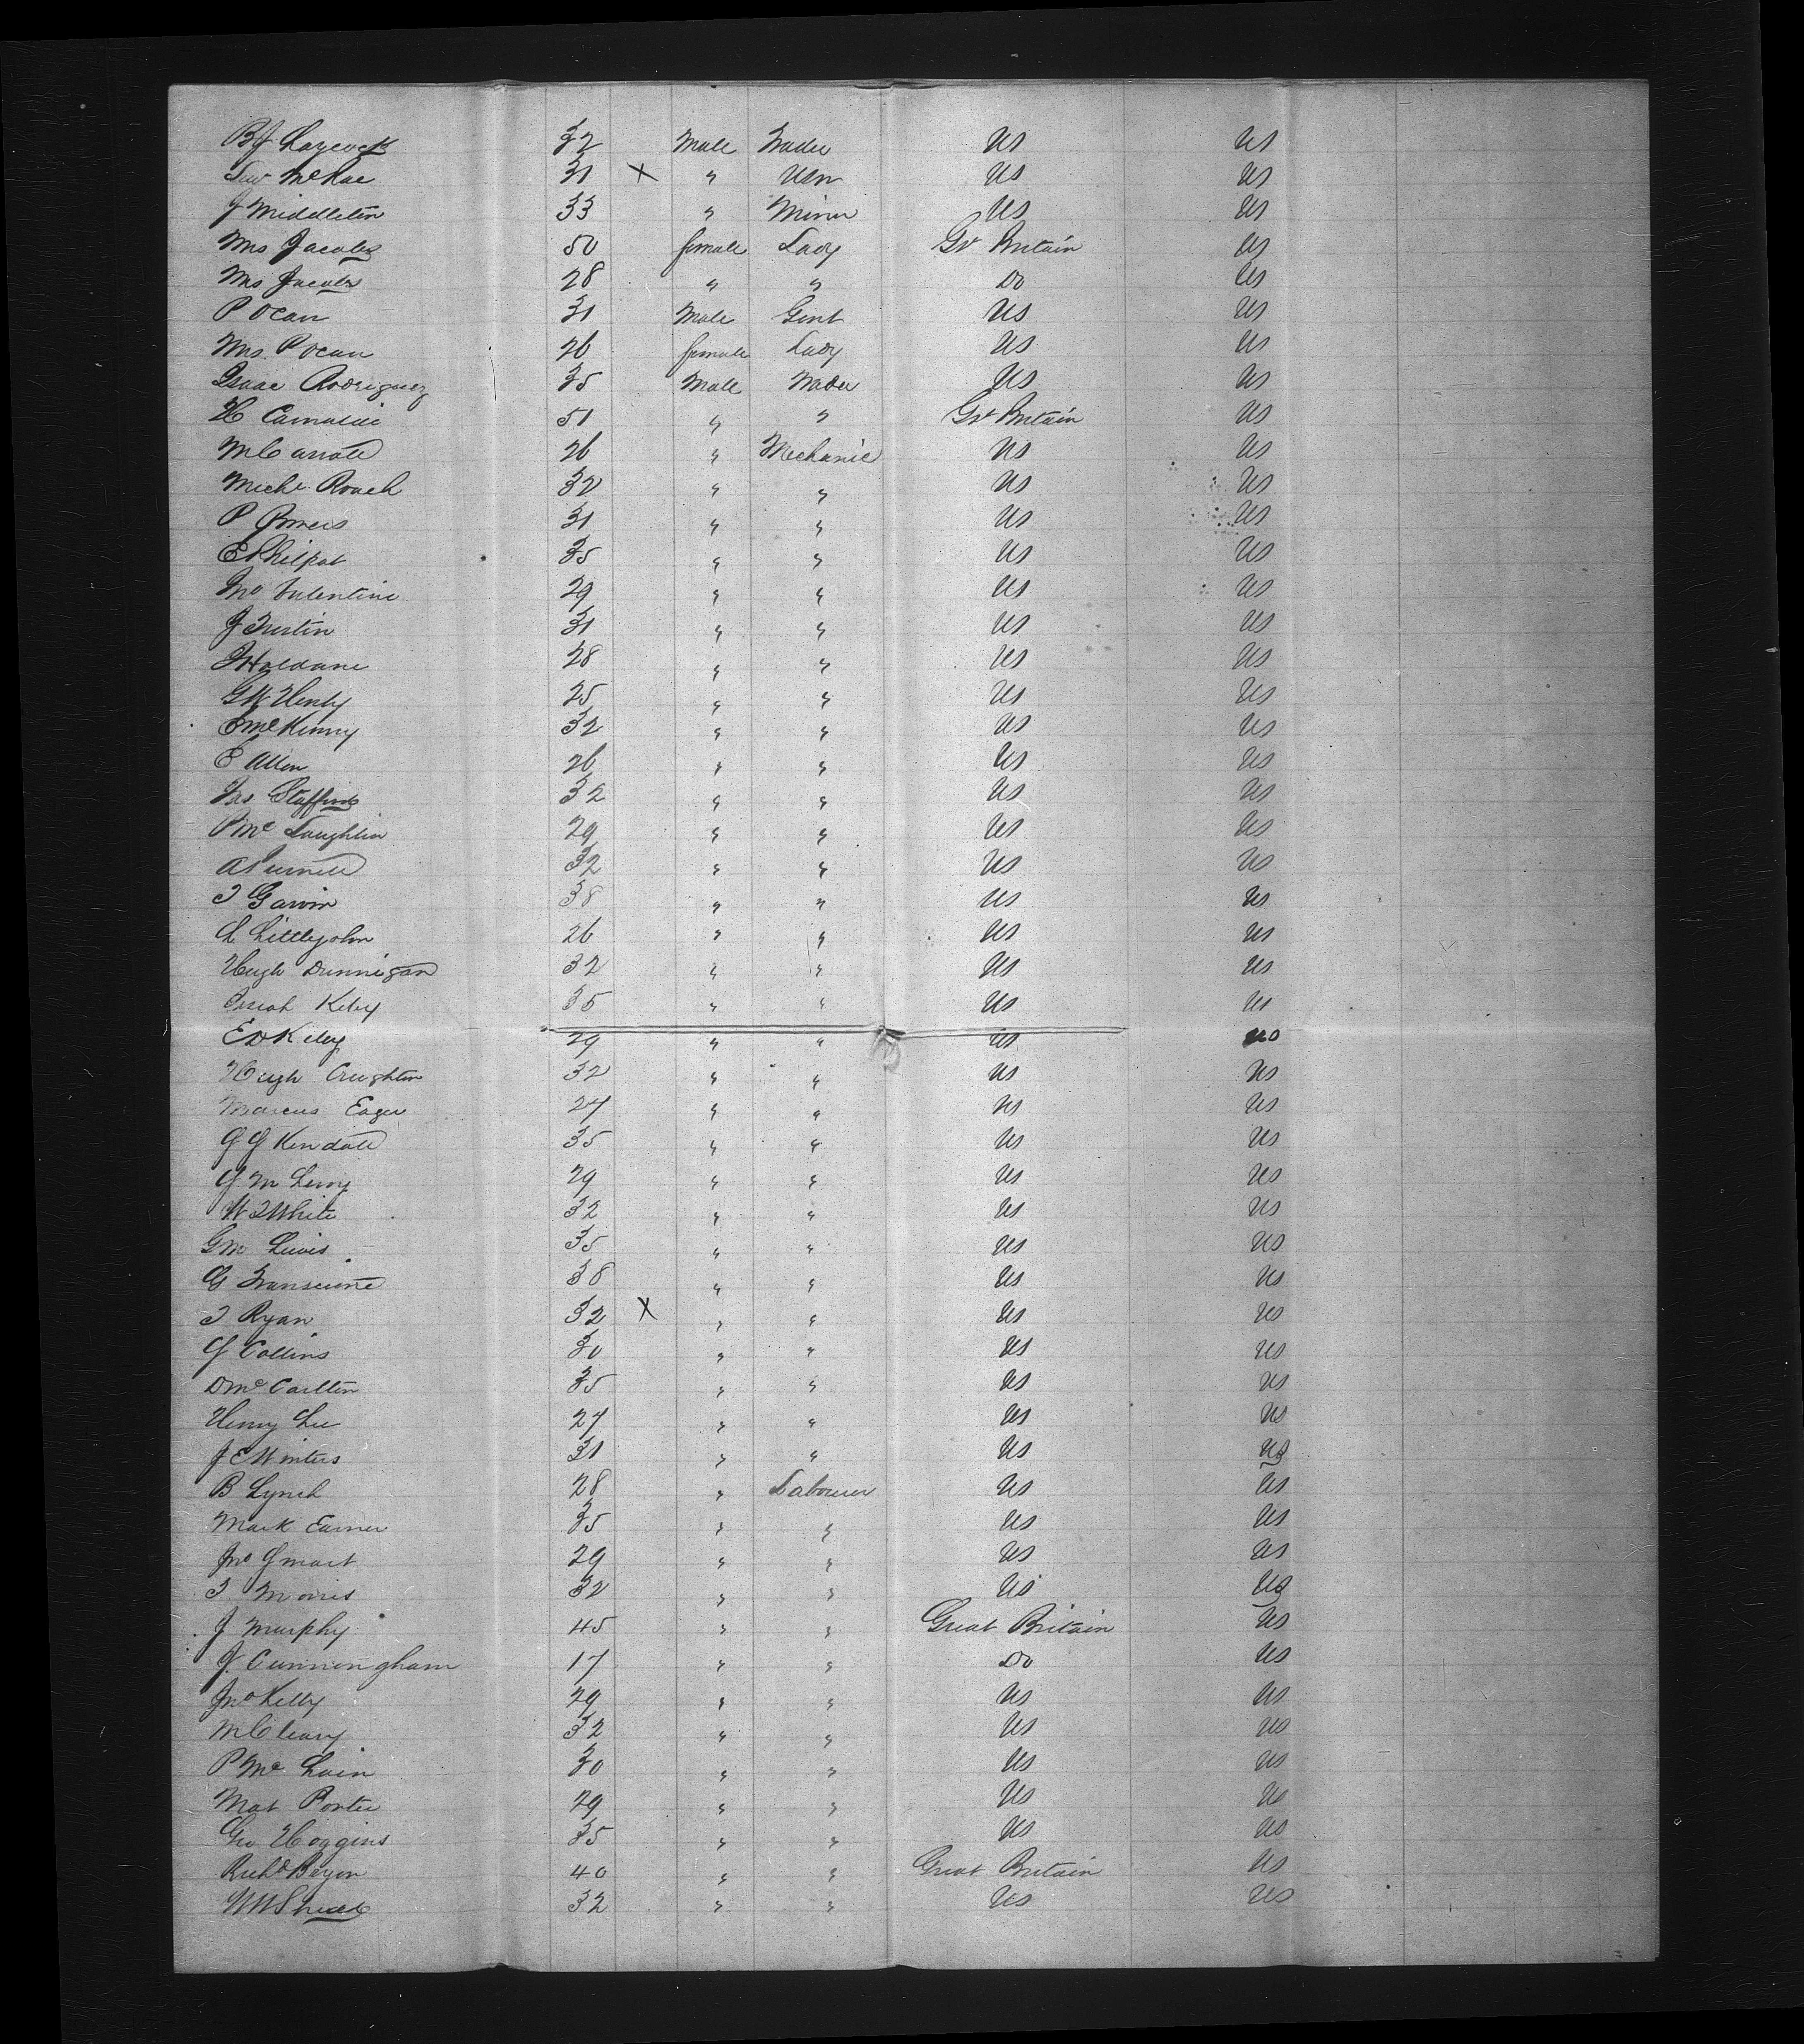 BJ Laycock 32 Male Trader US US
Lew McRae 31 X " USN US US
J Middleton 33 " Miner US US
Mrs Jacobs 50 female Lady Gt Britain US
Mrs Jacobs 28 " " Do US
P Ocan 31 Male Gent US US
Mrs. P Ocan 26 female Lady US US
Isaac Rodriguez 35 Male Trader US US
H 51 " " Gt Britain US
26 " Mechanic US US
Michl Roach 32 " " US US
P 31 " " US US
E Philpot 35 " " US US
Jno Valentine 29 " " US US
J 31 " " US US
Haldane 28 " " US US
GW Henly 25 " " US US
E McKinny 32 " " US US
E Allen 26 " " US US
Jas Stafford 32 " " US US
P Mc Laughlin 29 " " US US
A Purnell 32 " " US US
T Garvin 38 " " US US
L Littlejohn 26 " " US US
Hugh Dunnigan 32 " " US US
Josiah Kiley 35 " " US US
ED Kiley 29 " " US US
Hugh Creighton 32 " " US US
Marcus Eager 27 " " US US
J J Kendall 35 " " US US
J M Levy 29 " " US US
W T White 32 " " US US
GM Lewis 35 " " US US
G 38 " " US US
T Ryan 32 X " " US US
J Collins 30 " " US US
D McCarlton 35 " " US US
Henry Lee 27 " " US US
J E Winters 31 " " US US
B Lynch 28 " Labourer US US
Mark Earner 35 " " US US
Jno Smart 29 " " US US
T Morris 32 " " US US
J Murphy 45 " " Great Britain US
J. Cunningham 17 " " Do US
Jno Kelly 29 " " US US
M Cleary 32 " " US US
P Mc Lain 30 " " US US
Mat Porter 29 " " US US
Geo Hoggins 35 " " US US
Richd Bryon 40 " " Great Britain US
WW 32 " " US US